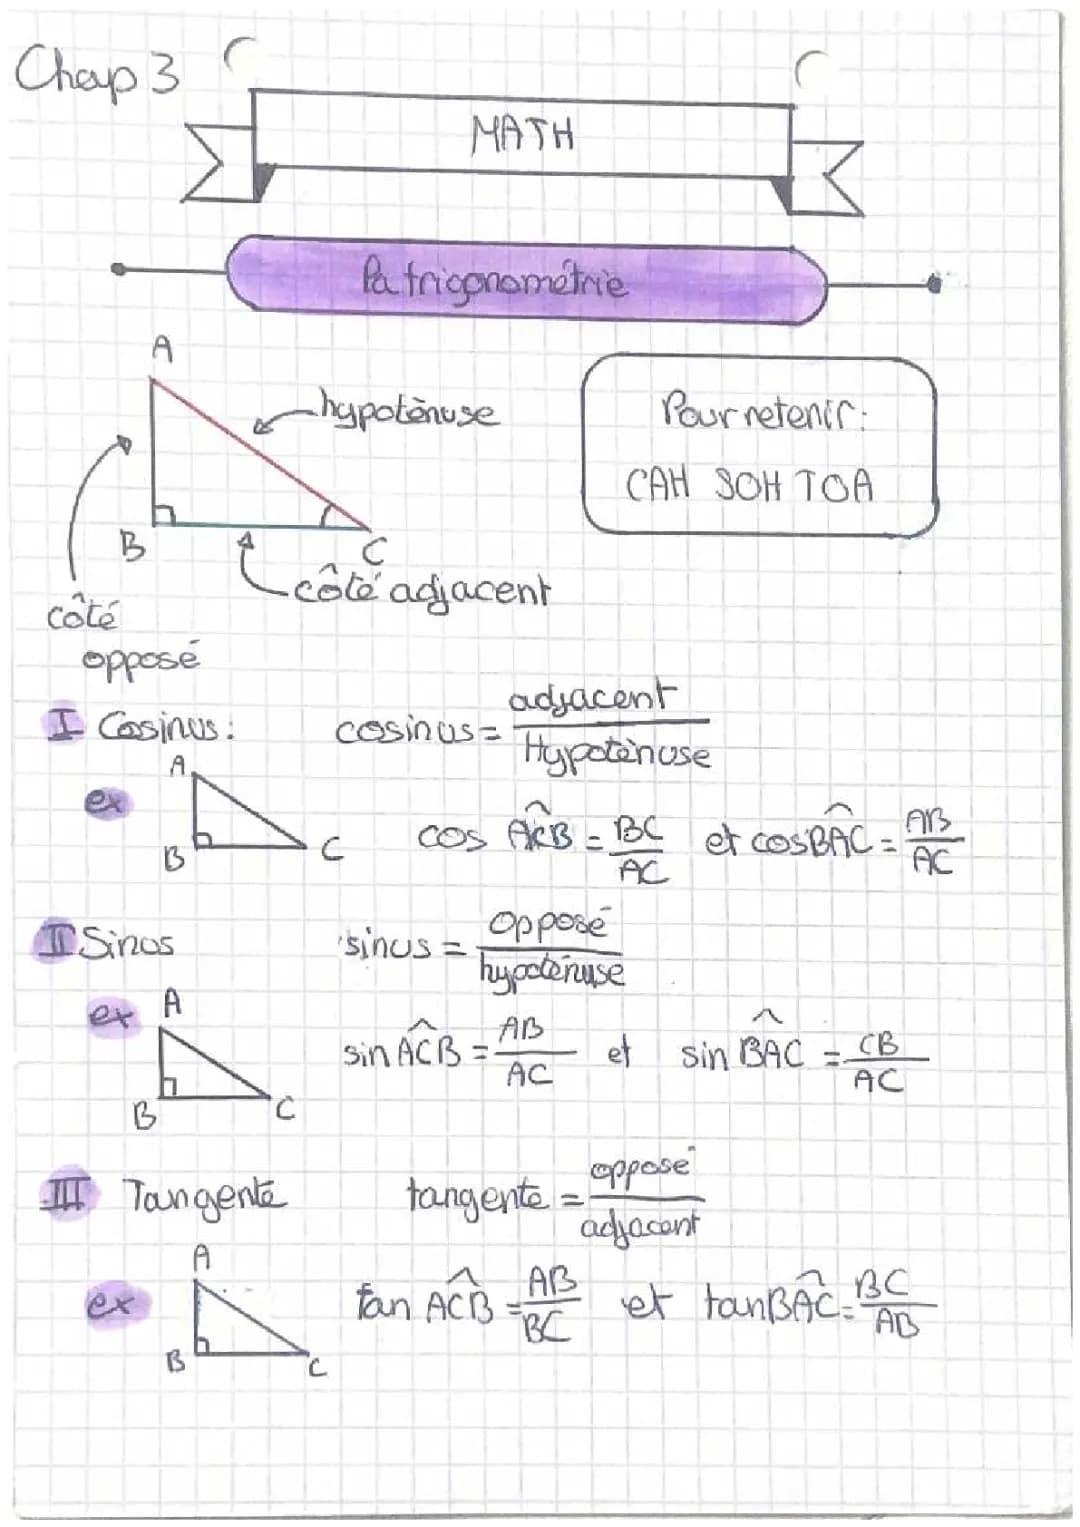 Chap 3
MATH
La trigonométrie
A
hypoténuse
Pour retenir:
CAH SOH TOA
B
C
côté adjacent
côté
opposé
I Cosinus: cosinus = adjacent / Hypoténuse
ex
A
B
C
cos ACB = BC / AC et cos BAC = AB / AC
II Sinus sinus = opposé / hypoténuse
ex
A
B
C
sin ACB = AB / AC et sin BAC = CB / AC
III Tangente tangente = opposé / adjacent
ex
A
B
C
tan ACB = AB / BC et tan BAC = BC / AB